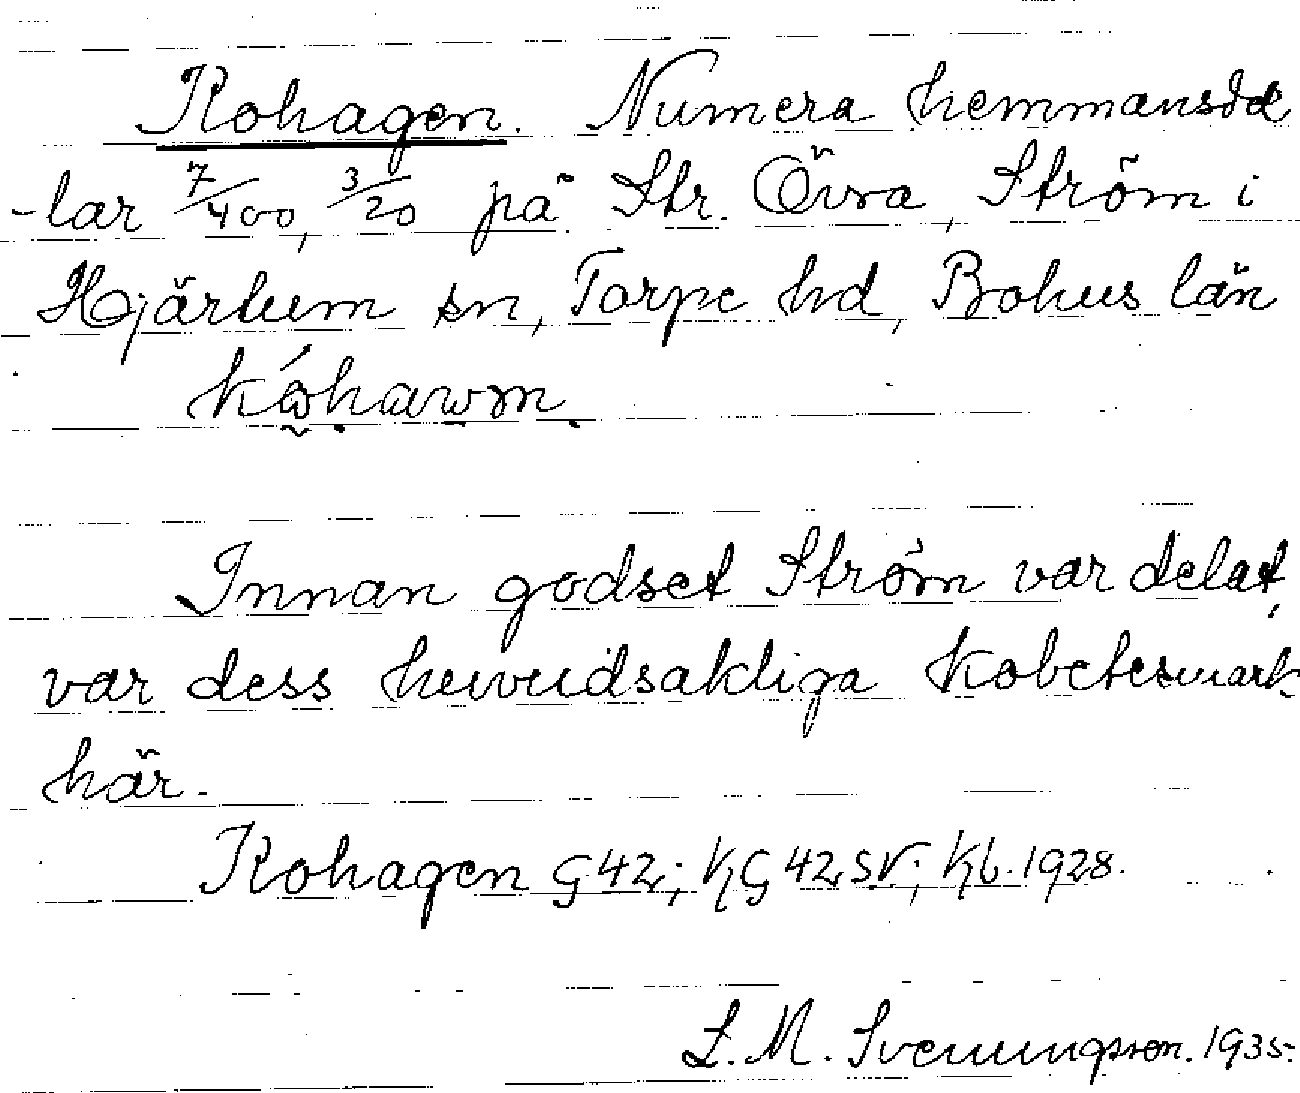 Kohagen. Numera hemmansde
-lar 7/400, 3/20 på Str. Övra, Ström i
Hjärtum sn, Torpe hd, Bohus län
Innan godset Ström var delat,
var dess huvudsakliga kobetesmark
här.
Kohagen G 42; KG 42 SV; Kb. 1928.
L. M. Svenungsson. 1935.